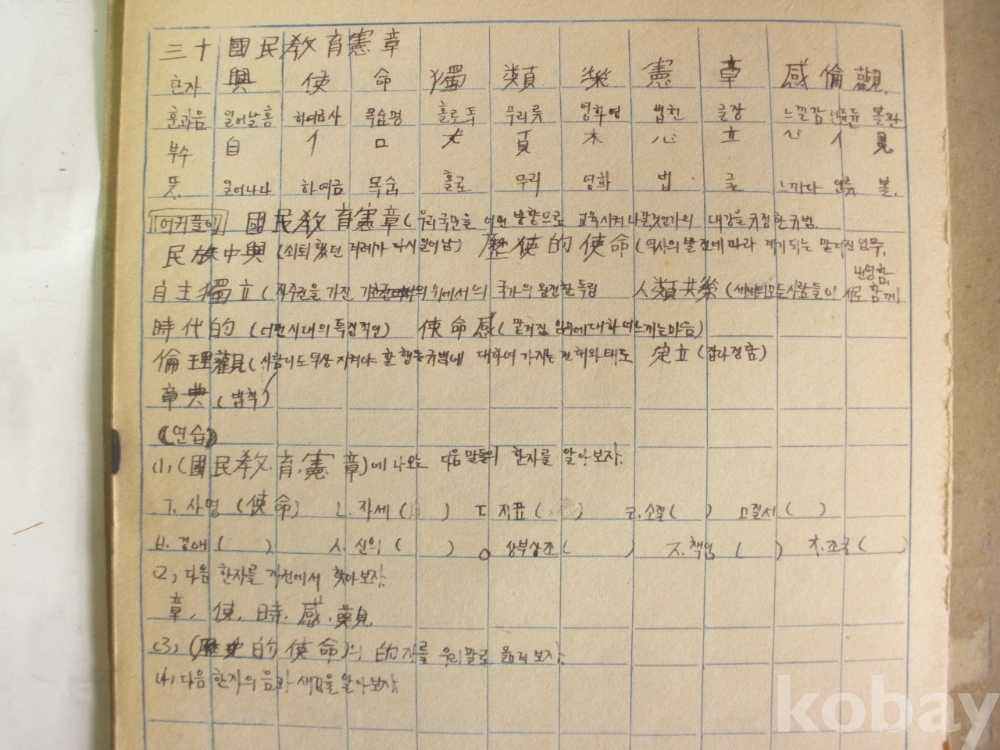 三十 國民敎育憲章
한자 興 使 命 獨 類 榮 憲 章 感 倫 觀
훈과음 일어날흥 하여금사 목숨명 홀로독 무리류 영화영 법헌 글장 느낄감 인륜륜 볼관
부수 自 亻 口 犬 頁 木 心 立 心 亻 見
뜻 일어나다 하여금 목숨 홀로 무리 영화 법 글 느끼다 인륜 볼
어귀풀이 國民敎育憲章 (우리국민을 어떤 방향으로 교육시켜 나갈것인가의 대강을 규정한 규범
民族中興 (쇠퇴했던 겨레가 다시 일어남) 歷使的使命 (역사의 발전에 따라 제기되는 맡겨진 임무,
自主獨立 (자주권을 가진 위에서의 국가의 완전한 독립 人類共榮 (모든사람들이 서로 함께 번영함,
時代的 (어떤시대의 특징적인) 使命感 (맡겨진 임무에대하여느끼는마음)
倫理觀 (사람이도 지켜야 할 행동규범에 대하여 가지는 견해와 태도 定立 (잡아정함)
章典 (법칙)
(연습)
(1), (國民敎育憲章)에 나오는 다음 말들의 한자를 알아보자.
ㄱ. 사명 (使命) ㄴ. 자세 ( ) ㄷ 지표 ( ) ㄹ. 소질 ( ) ㅁ질서 ( )
ㅂ. 경애 ( ) ㅅ. 신의 ( ) ㅇ 상부상조 ( ) ㅈ. 책임 ( ) ㅊ. 조국 ( )
(2), 다음 한자를 자전에서 찾아보자.
章, 使, 時, 感, 觀
(3), (歷史的使命)의 的자를 우리말로 옮겨 보자.
(4), 다음 한자의 음과 새김을 알아보자
kobay